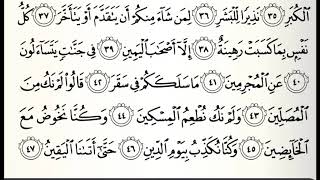 ٱلْكُبَرِ ٣٥ نَذِيرًا لِّلْبَشَرِ ٣٦ لِمَن شَآءَ مِنكُمْ أَن يَتَقَدَّمَ أَوْ يَتَأَخَّرَ ٣٧ كُلُّ
نَفْسٍۭ بِمَا كَسَبَتْ رَهِينَةٌ ٣٨ إِلَّآ أَصْحَٰبَ ٱلْيَمِينِ ٣٩ فِى جَنَّٰتٍ يَتَسَآءَلُونَ
٤٠ عَنِ ٱلْمُجْرِمِينَ ٤١ مَا سَلَكَكُمْ فِى سَقَرَ ٤٢ قَالُوا۟ لَمْ نَكُ مِنَ
ٱلْمُصَلِّينَ ٤٣ وَلَمْ نَكُ نُطْعِمُ ٱلْمِسْكِينَ ٤٤ وَكُنَّا نَخُوضُ مَعَ
ٱلْخَآئِضِينَ ٤٥ وَكُنَّا نُكَذِّبُ بِيَوْمِ ٱلدِّينِ ٤٦ حَتَّىٰٓ أَتَىٰنَا ٱلْيَقِينُ ٤٧